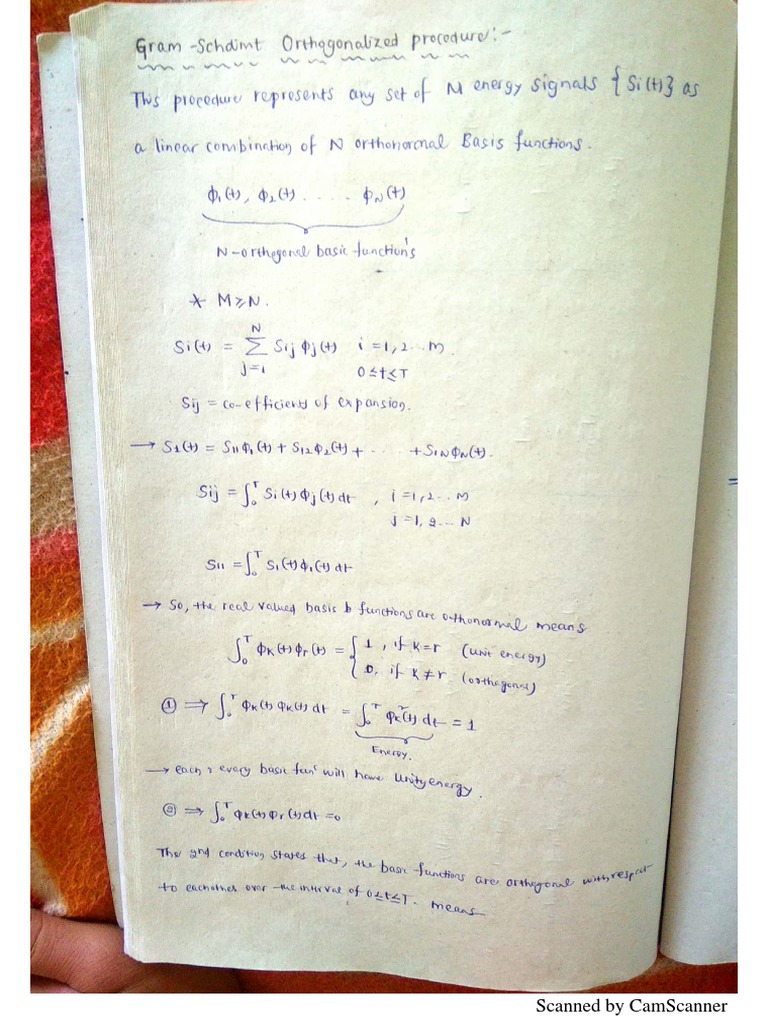 Gram-Schdimt Orthogonalized procedure:-
This procedure represents any set of M energy signals {Si(t)} as
a linear combination of N orthonormal Basis functions.
ϕ₁(t), ϕ₂(t) ..... ϕN(t)
N-orthogonal basic function's
* M≥N.
Si(t) = N∑j=1 Sij ϕj(t) i=1,2...M
0≤t≤T
Sij = co-efficients of expansion.
→ S1(t) = S11ϕ1(t) + S12ϕ2(t) + .... + S1NϕN(t).
Sij = ∫₀ᵀ Si(t) ϕj(t) dt , i=1,2...M
j=1,2...N
S11 = ∫₀ᵀ S1(t) ϕ1(t) dt
→ So, the real valued basis b functions are othonormal means
∫₀ᵀ ϕk(t) ϕr(t) = { 1, if k=r (unit energy)
0, if k≠r (orthogonal)
① ⇒ ∫₀ᵀ ϕk(t) ϕk(t) dt = ∫₀ᵀ ϕk²(t) dt = 1
Energy.
→ each & every basic funⁿ will have Unity energy.
② ⇒ ∫₀ᵀ ϕk(t) ϕr(t) dt = 0
The 2nd condition states that, the basic functions are orthogonal with respect
to eachother over the interval of 0≤t≤T. means
Scanned by CamScanner